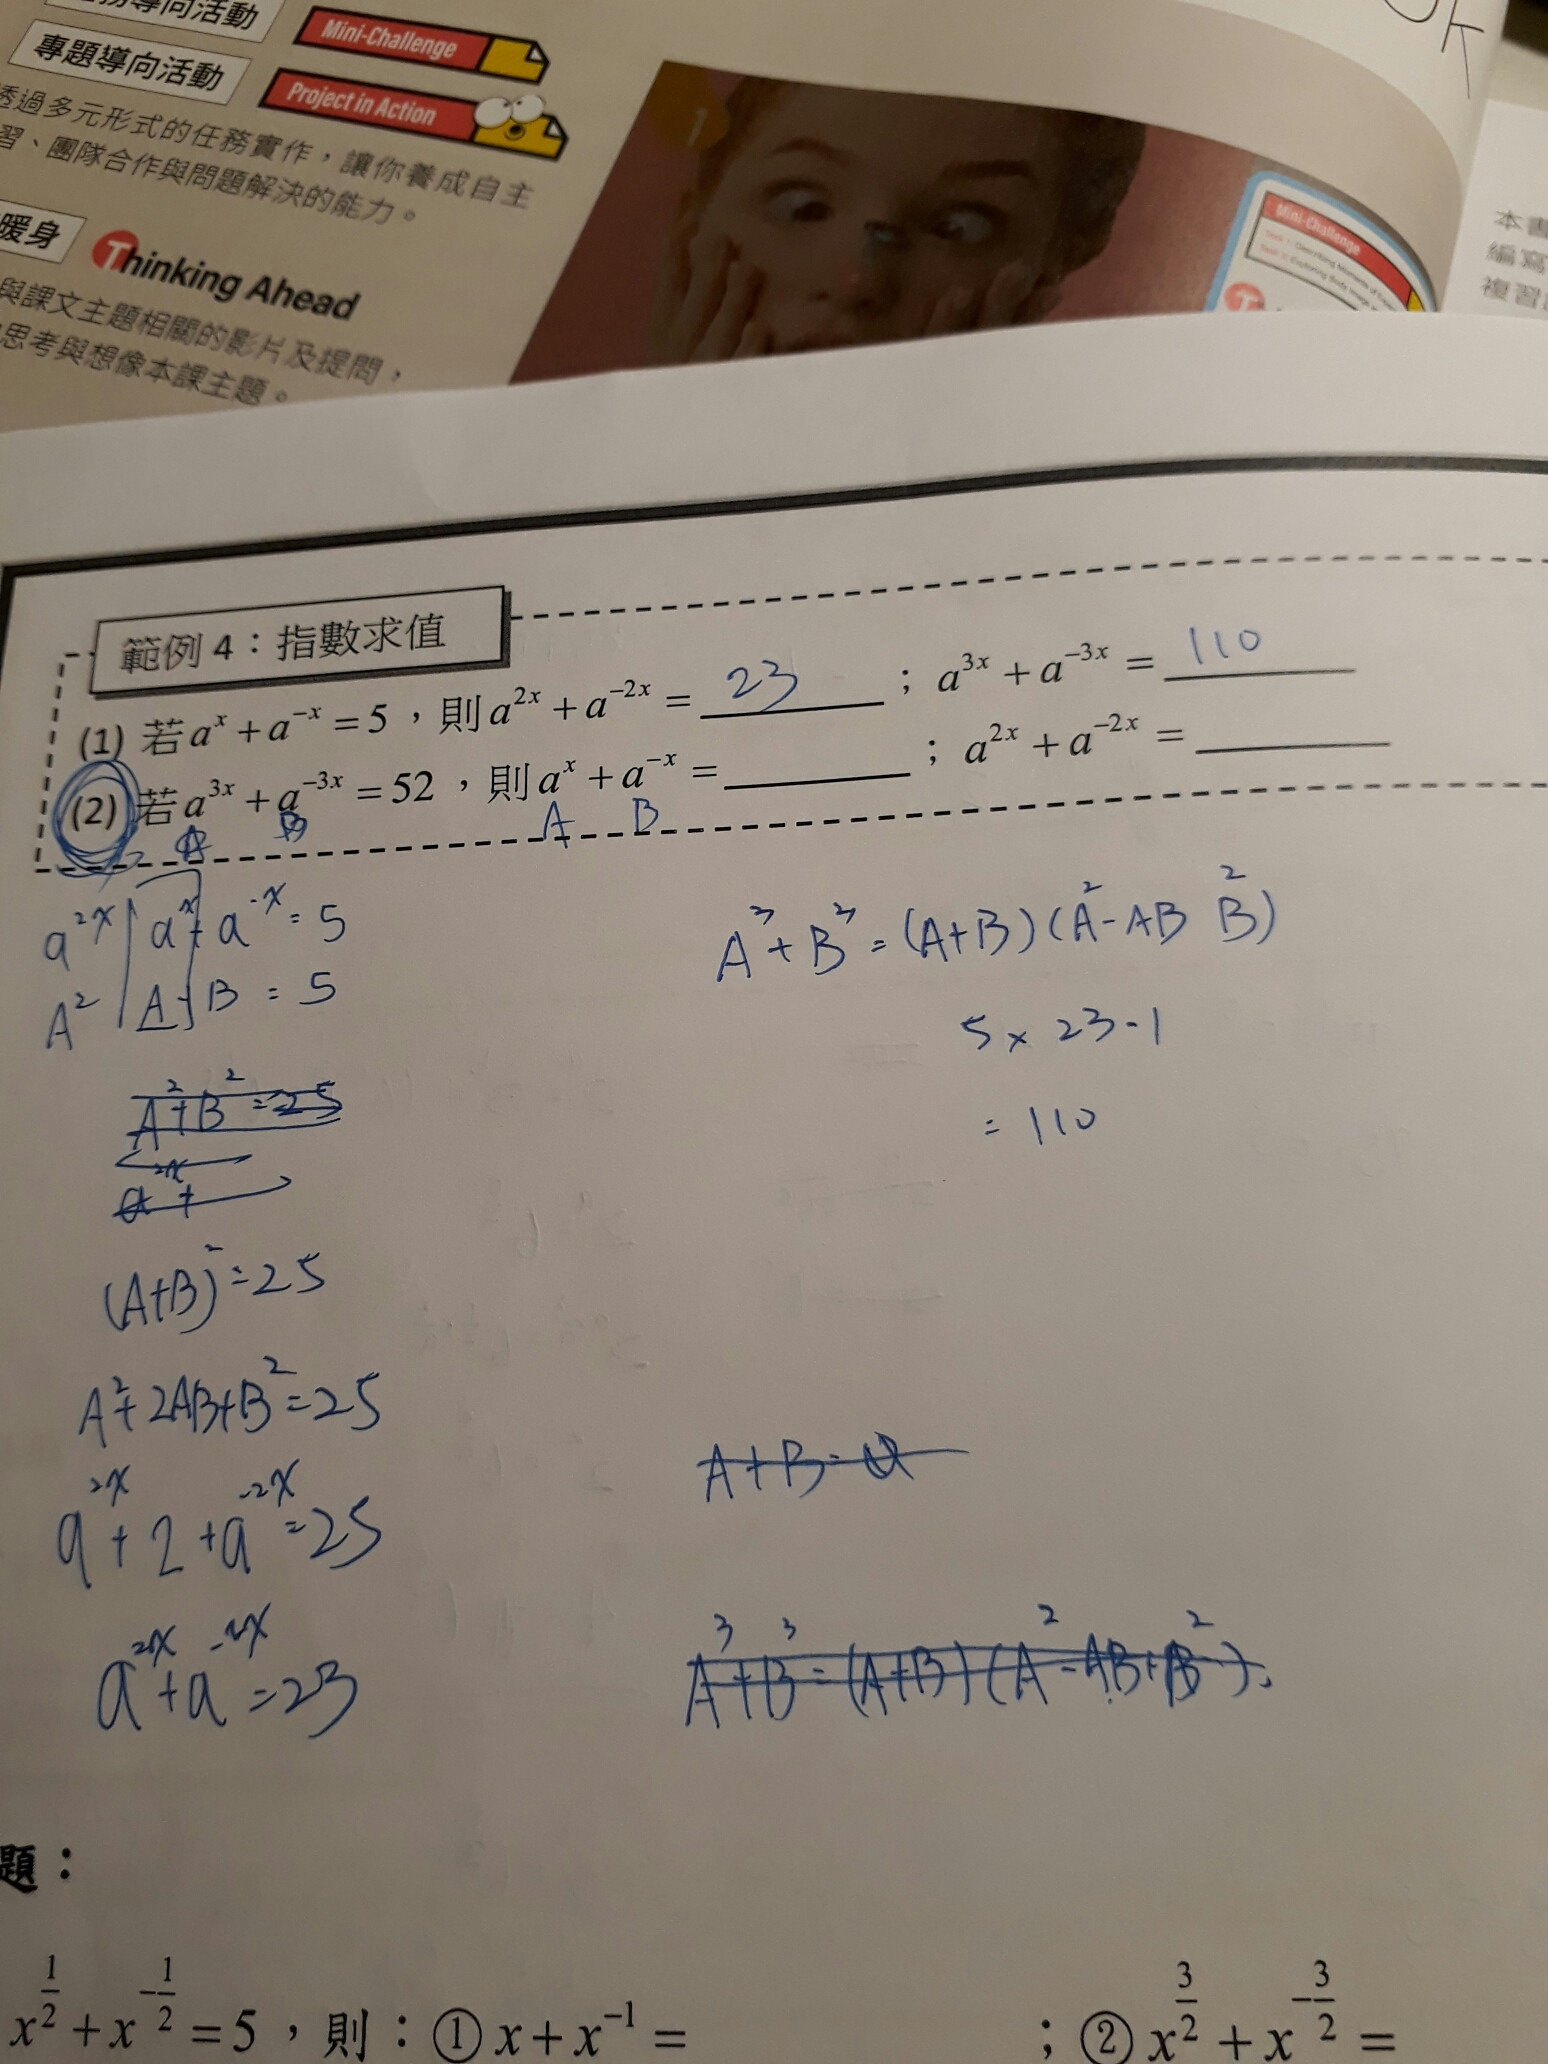 專題導向活動
Mini-Challenge
Project in Action
透過多元形式的任務實作，讓你養成自主
習、團隊合作與問題解決的能力。
暖身 Thinking Ahead
與課文主題相關的影片及提問，
思考與想像本課主題。
1
Mini-Challenge
本書
編寫
複習
範例 4：指數求值
(1) 若 a^x + a^{-x} = 5，則 a^{2x} + a^{-2x} = 23 ； a^{3x} + a^{-3x} = 110
(2) 若 a^{3x} + a^{-3x} = 52，則 a^x + a^{-x} = ； a^{2x} + a^{-2x} =
A B A B
a^{2x} a^x + a^{-x} = 5
A^2 A + B = 5
A^2 + B^2 = 25
a^{2x} +
(A+B)^2 = 25
A^2 + 2AB + B^2 = 25
a^{2x} + 2 + a^{-2x} = 25
a^{2x} + a^{-2x} = 23
A^3 + B^3 = (A+B)(A^2 - AB B^2)
5 × 23 - 1
= 110
A + B =
A^3 + B^3 = (A+B)(A^2 - AB + B^2)
題：
x^{1/2} + x^{-1/2} = 5，則：① x + x^{-1} = ；② x^{3/2} + x^{-3/2} =